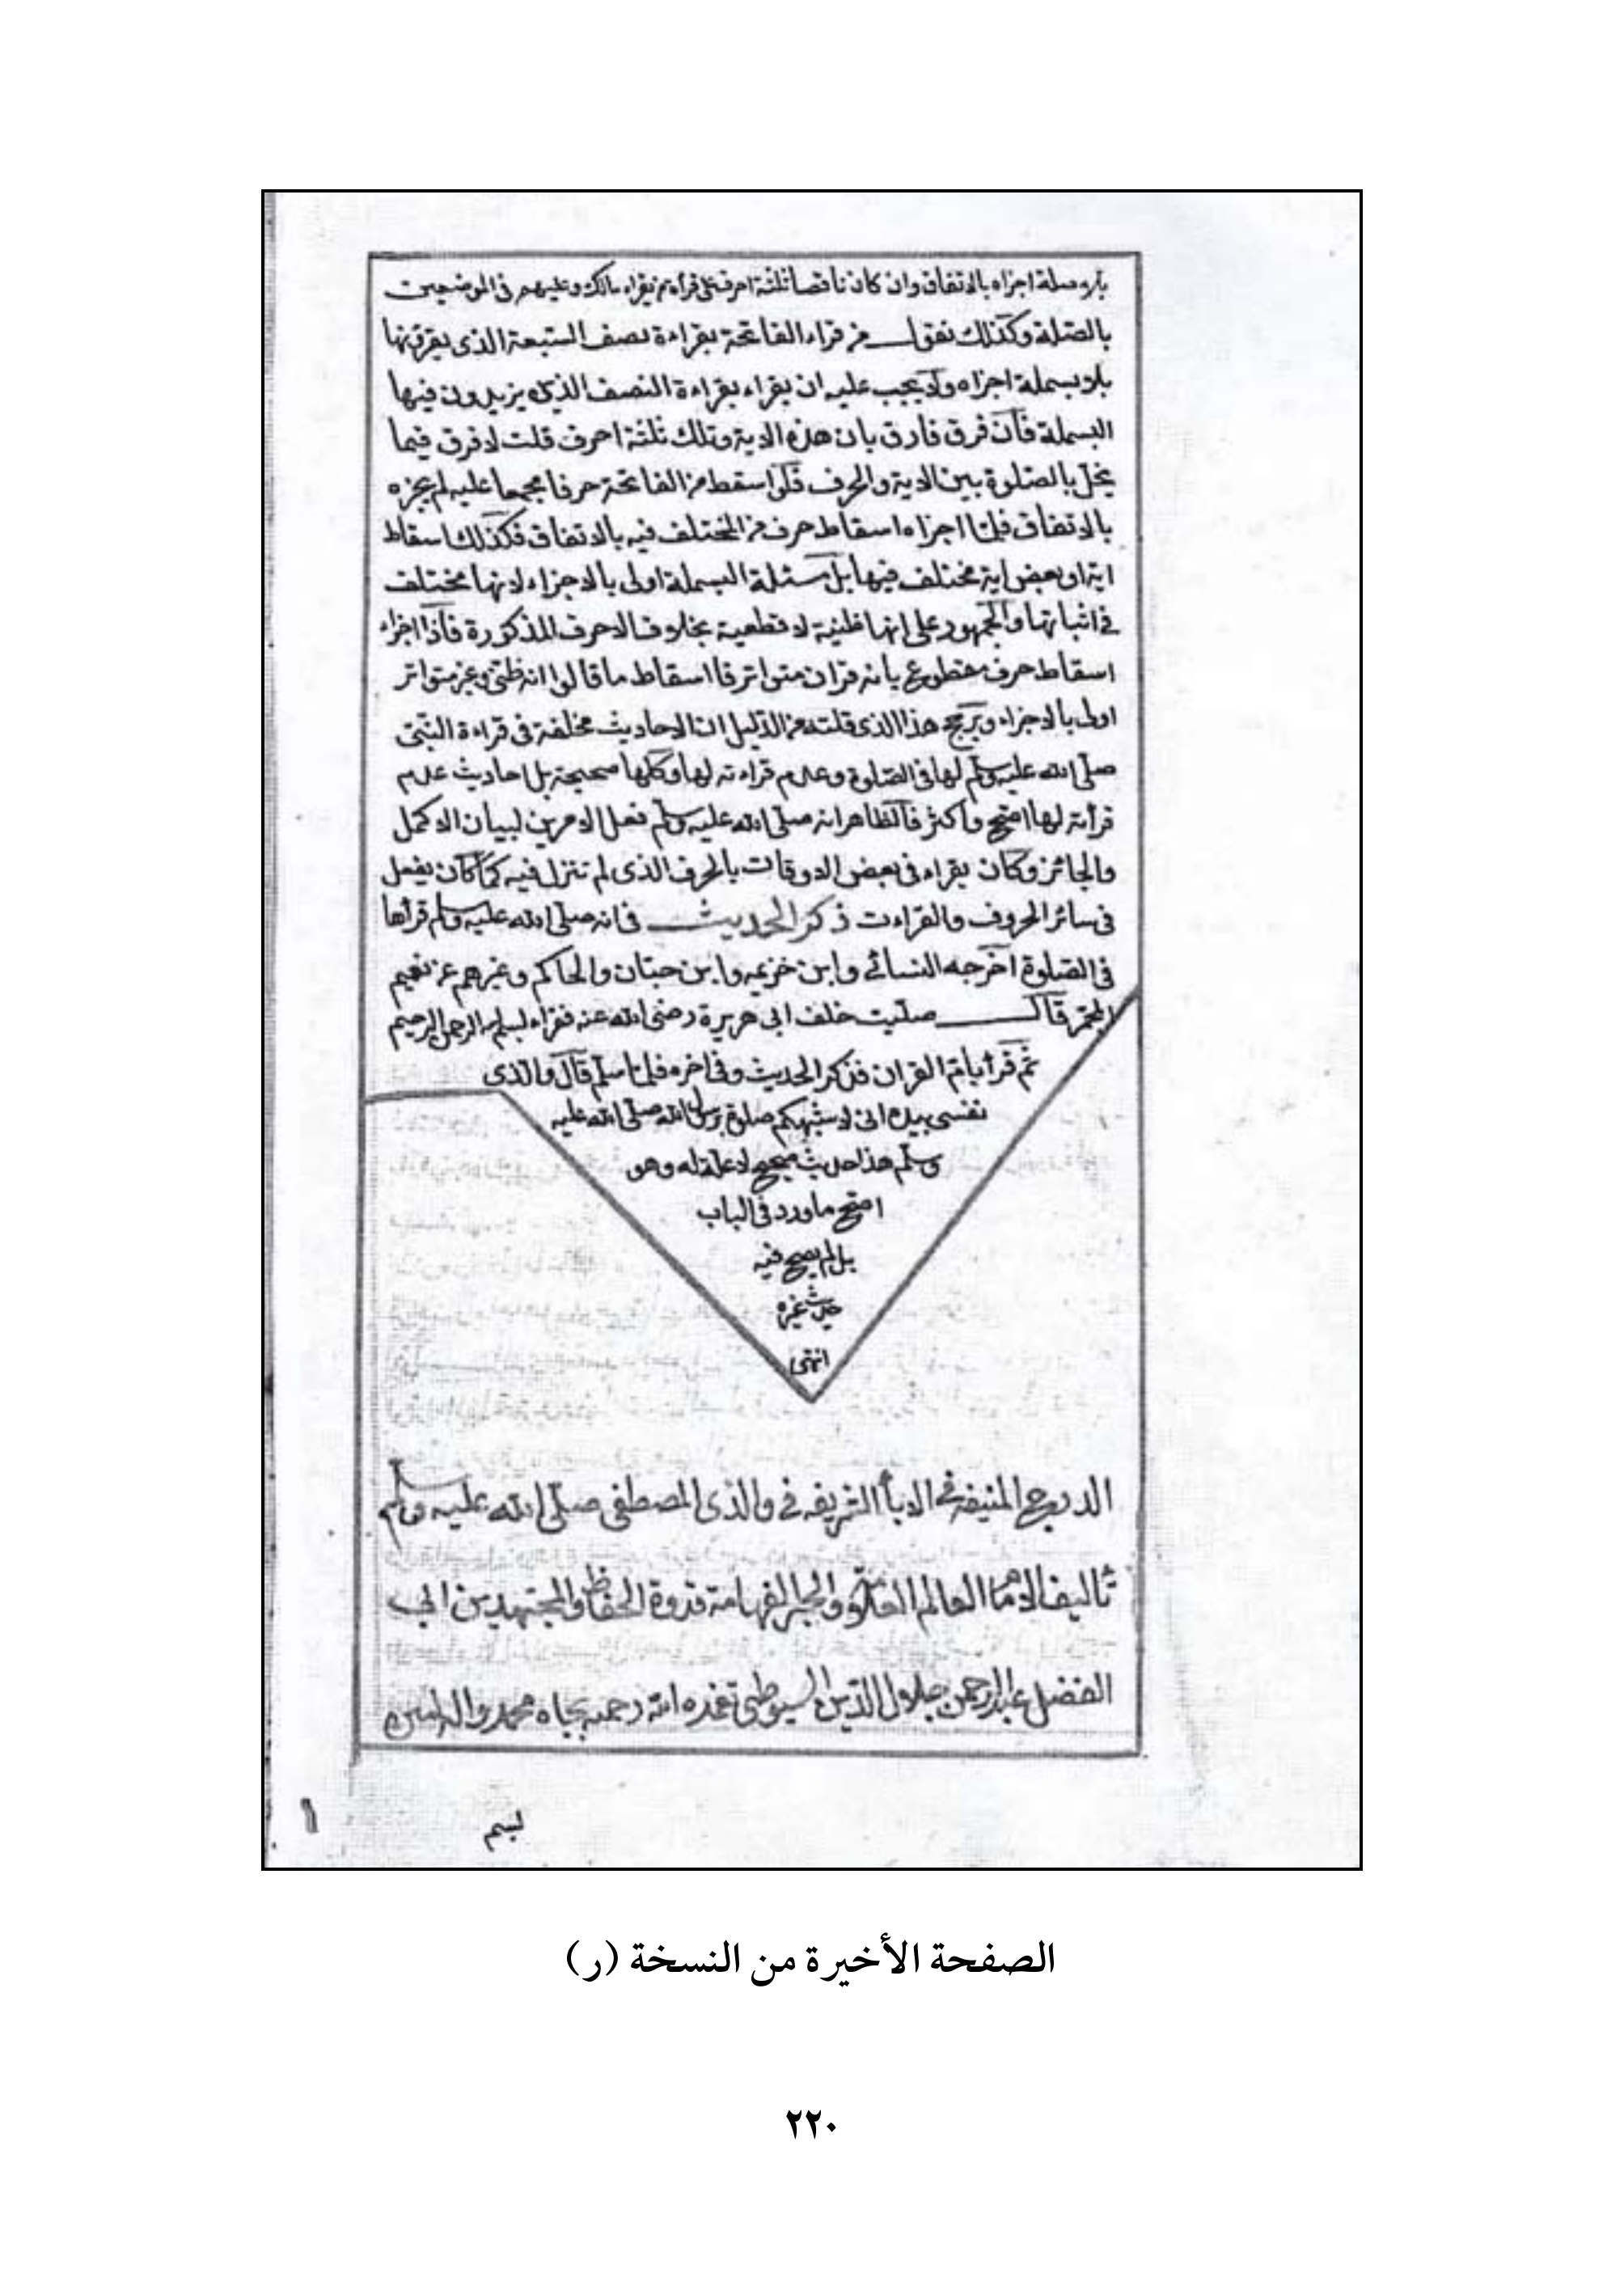 بلا وصلة اجزاه بالاتفاق وان كان ناقصا ثلثة احرف على قرأة من يقراء مالك وعليهم فى الموضعين
بالصلة وكذلك نقول من قراء الفاتحة بقراءة نصف السبعة الذى يقرؤنها
بلا بسملة اجزاه ولا يجب عليه ان يقراء بقراءة النصف الذى يزيدون فيها
البسملة فان فرق فارق بان هذه الاية وتلك ثلثة احرف قلت لا فرق فيما
يخل بالصلوة بين الاية والحرف فلو اسقط من الفاتحة حرفا مجمعا عليه لم يجزه
بالاتفاق فلما اجزاه اسقاط حرف من المختلف فيه بالاتفاق فكذلك اسقاط
اية او بعض اية مختلف فيها بل مسئلة البسملة اولى بالاجزاء لانها مختلف
فى اثباتها والجمهور على انها ظنية لا قطعية بخلاف الاحرف المذكورة فاذا اجزاء
اسقاط حرف مقطوع بانه قران متواتر فا اسقاط ما قالوا انه ظنى وغير متواتر
اولى بالاجزاء ويرجح هذا الذى قلته من الدليل ان الاحاديث مختلفة فى قراءة النبى
صلى الله عليه وسلم لها فى الصلوة وعدم قراءته لها وكلها صحيحة بل احاديث عدم
قرأته لها اصح واكثر فالظاهر انه صلى الله عليه وسلم فعل الامرين لبيان الاكمل
والجائز وكان يقراء فى بعض الاوقات بالحرف الذى لم تنزل فيه كما كان يفعل
فى سائر الحروف والقراءت ذكر الحديث فانه صلى الله عليه وسلم قرأها
فى الصلوة اخرجه النسائى وابن خزيمه وابن حبان والحاكم وغيرهم عن نعيم
المجمر قال صليت خلف ابى هريرة رضى الله عنه فقراء بسم الله الرحمن الرحيم
ثم قرأ بام القران فذكر الحديث وفى اخره فلما سلم قال والذى
نفسى بيده انى لاشبهكم صلوة برسول الله صلى الله عليه
وسلم هذا حديث صحيح لا علة له وهو
اصح ما ورد فى الباب
بل لم يصح فيه
حديث غيره
انتهى
الدروج المنيفه فى الابأ الشريفه فى والذى المصطفى صلى الله عليه وسلم
تأليف الامام العالم العلامة والحبر الفهامة قدوة الحفاظ والمجتهدين ابى
الفضل عبد الرحمن جلال الدين السيوطى تغمده الله رحمه بجاه محمد واله امين
بسم
١
الصفحة الأخيرة من النسخة (ر)
٢٢٠